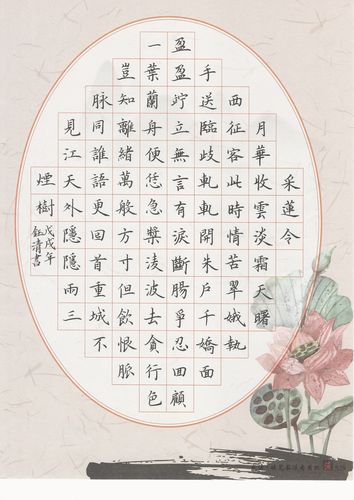 采蓮令
月華收雲淡霜天曙
西征客此時情苦翠娥執
手送臨歧軋軋開朱戶千嬌面
盈盈竚立無言有淚斷腸爭忍回顧
一葉蘭舟便恁急槳淩波去貪行色
豈知離緒萬般方寸但飲恨脈
脈同誰語更回首重城不
見江天外隱隱兩三
煙樹
戊戌年
鈺清書